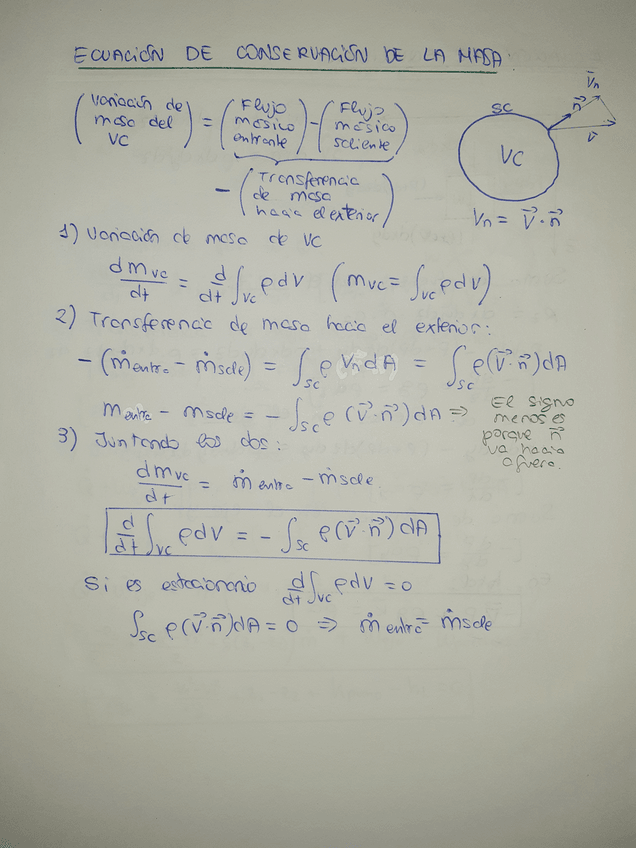 ECUACIÓN DE CONSERVACIÓN DE LA MASA:
(Variación de masa del VC) = (Flujo másico entrante) - (Flujo másico saliente)
- (Transferencia de masa hacia el exterior)
SC
VC
n⃗
V⃗n
V⃗
Vn = V⃗·n⃗
1) Variación de masa de VC
dmvc/dt = d/dt ∫vc ρdV (mvc = ∫vc ρdV)
2) Transferencia de masa hacia el exterior:
- (ṁentra - ṁsale) = ∫sc ρ Vn dA = ∫sc ρ(V⃗·n⃗)dA
mentra - msale = - ∫sc ρ (V⃗·n⃗)dA ⇒ El signo menos es porque n⃗ va hacia afuera.
3) Juntando los dos:
dmvc/dt = ṁentra - ṁsale.
d/dt ∫vc ρdV = - ∫sc ρ(V⃗·n⃗)dA
Si es estacionario d/dt ∫vc ρdV = 0
∫sc ρ(V⃗·n⃗)dA = 0 ⇒ ṁentra = ṁsale